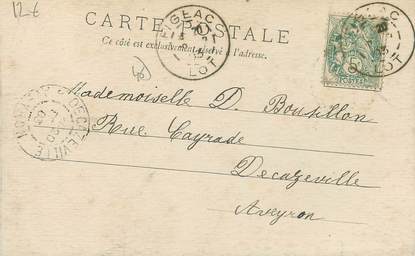 12-6
CARTE POSTALE
Ce côté est exclusivement réservé à l'adresse.
FIGEAC
LOT
FIGEAC
LOT
DECAZEVILLE
Mademoiselle D. Boutillon
Rue Cayrade
Decazeville
Aveyron